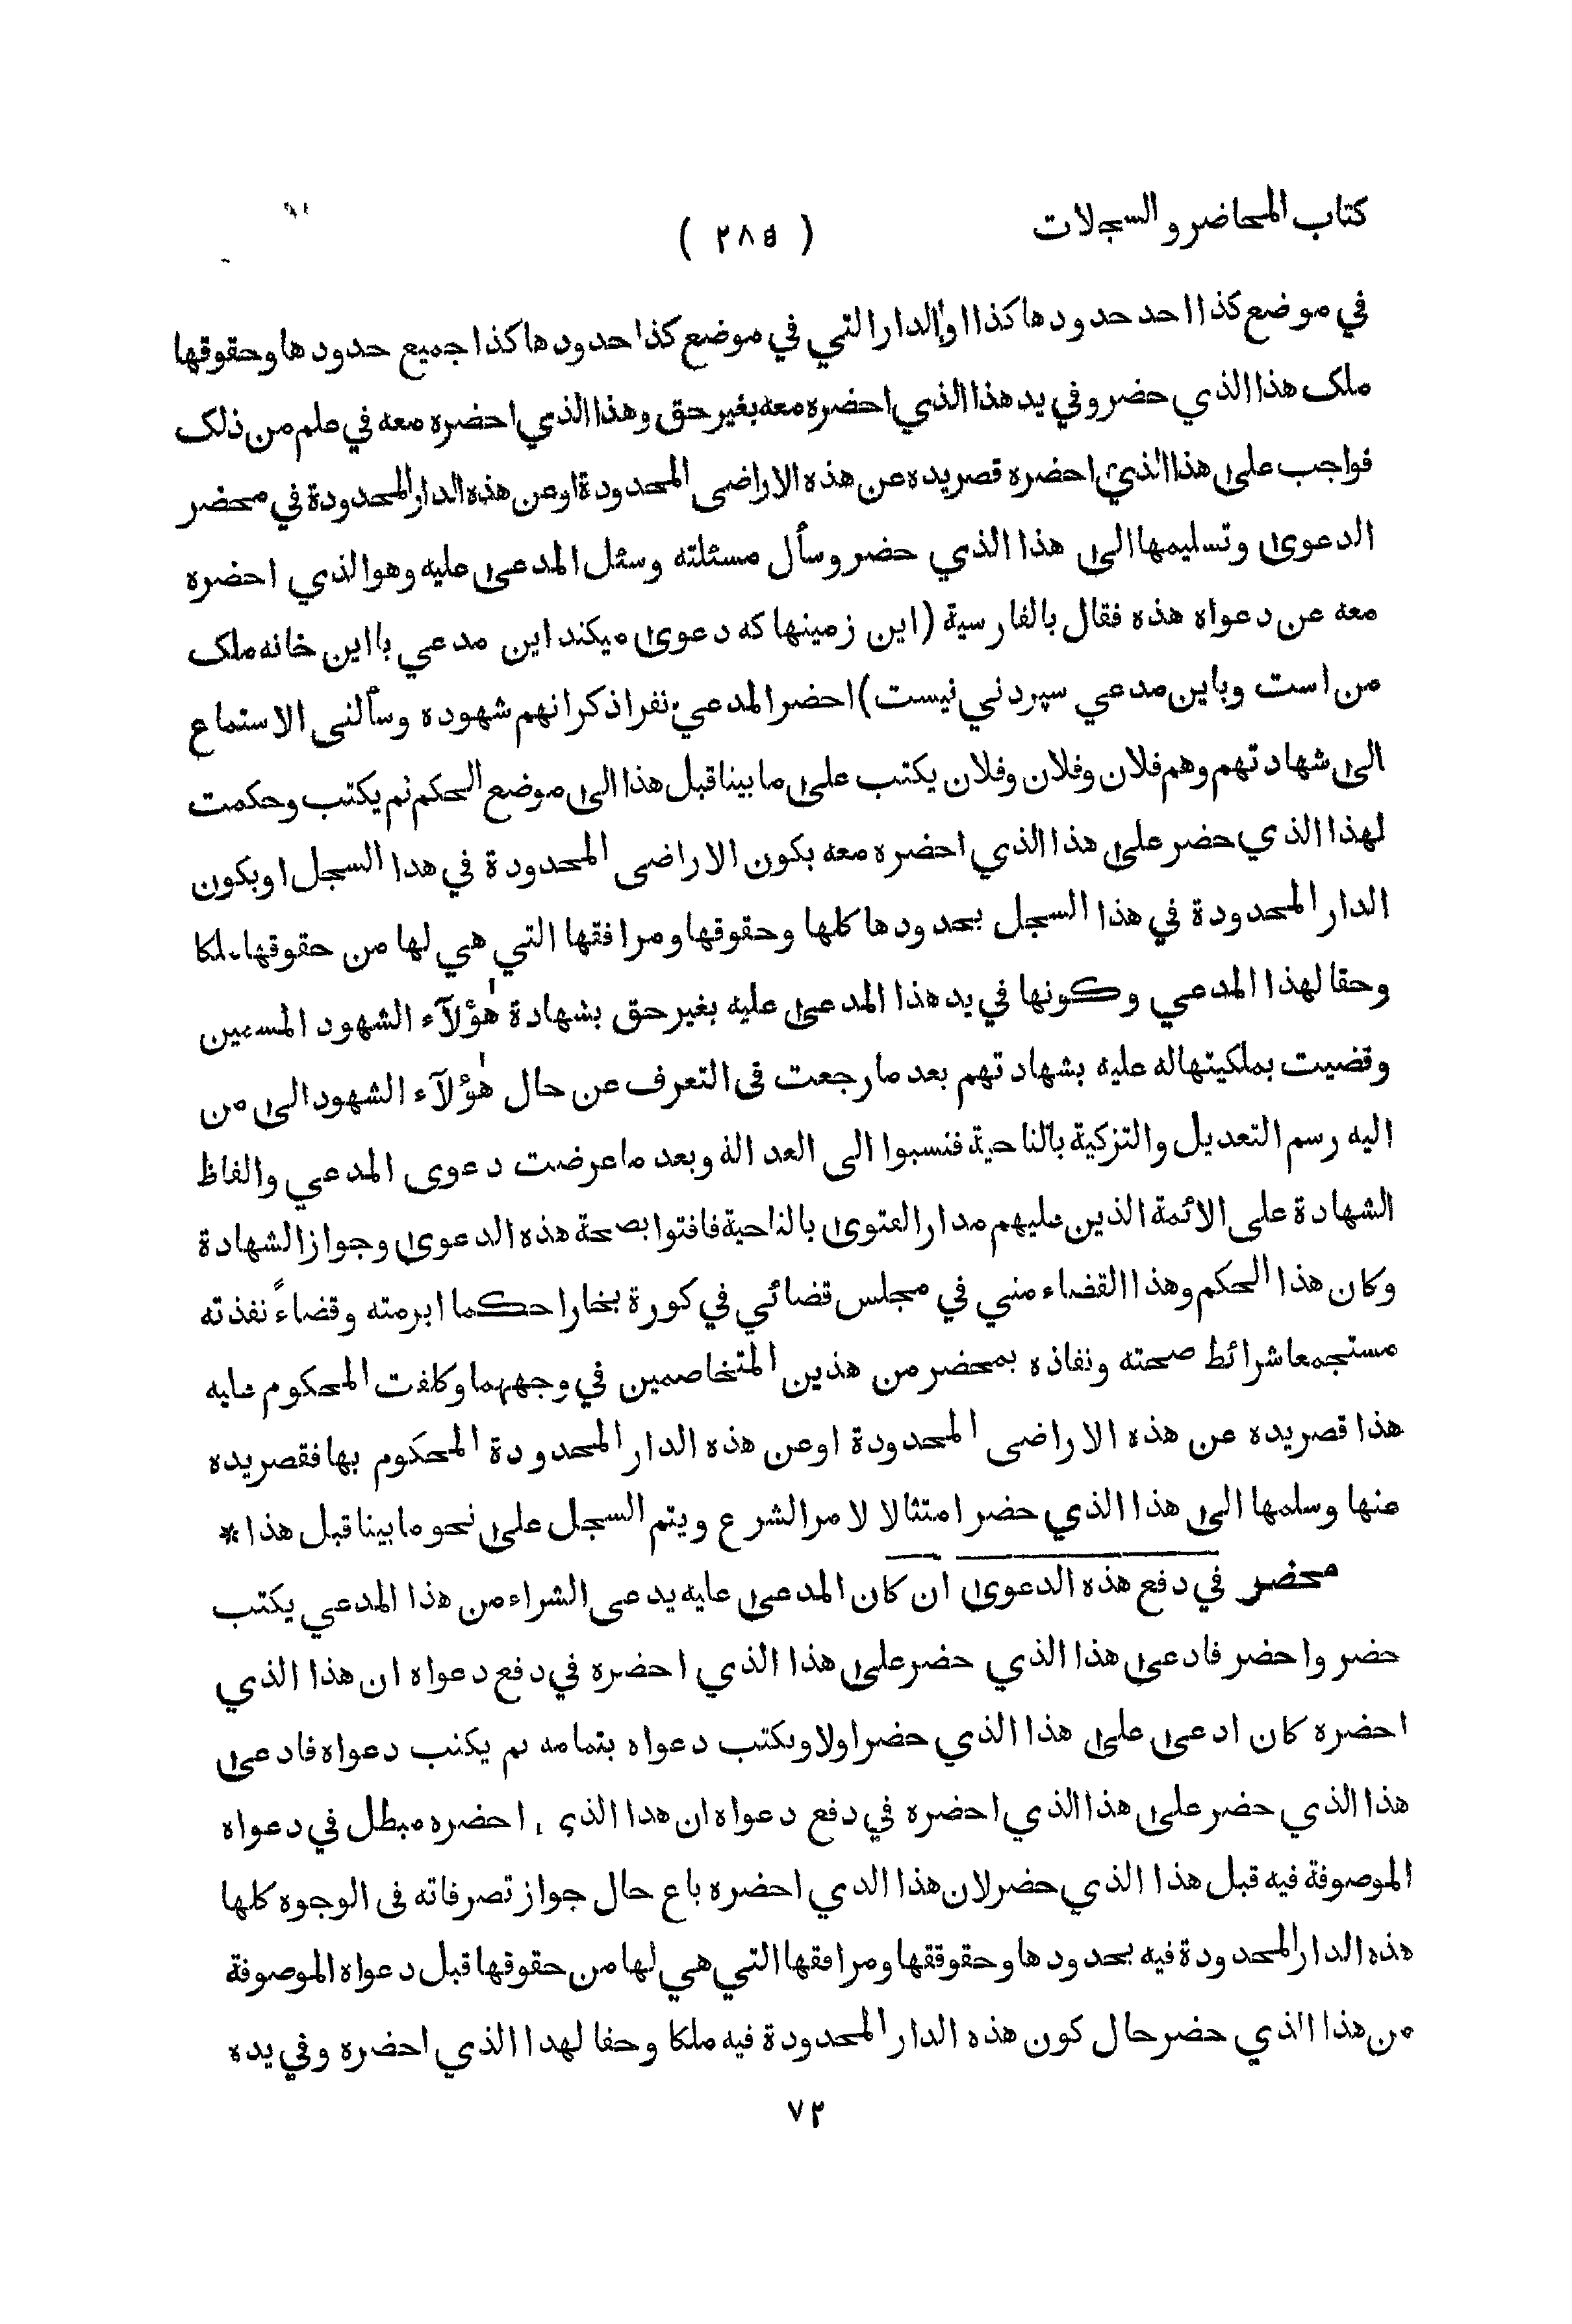 كتاب المحاضر والسجلات
( ٢٨٥ )
في موضع كذا احد حدودها كذا اوالدار التي في موضع كذا حدودها كذا جميع حدودها وحقوقها
ملك هذا الذي حضر وفي يد هذا الذي احضره معه بغير حق وهذا الذي احضره معه في علم من ذلك
فواجب على هذا الذي احضره قصر يده عن هذه الاراضى المحدودة اوعن هذه الدار المحدودة في محضر
الدعوى وتسليمها الى هذا الذي حضر وسأل مسئلته وسئل المدعى عليه وهو الذي احضره
معه عن دعواه هذه فقال بالفارسية (اين زمينها كه دعوى ميكند اين مدعي با اين خانه ملک
من است وباين مدعي سپردني نيست) احضر المدعي نفرا ذكر انهم شهوده وسألنى الاستماع
الى شهادتهم وهم فلان وفلان وفلان يكتب على ما بينا قبل هذا الى موضع الحكم ثم يكتب وحكمت
لهذا الذي حضر على هذا الذي احضره معه بكون الاراضى المحدودة في هدا السجل اوبكون
الدار المحدودة في هذا السجل بحدودها كلها وحقوقها ومرافقها التي هي لها من حقوقها ملكا
وحقا لهذا المدعي وكونها في يد هذا المدعى عليه بغير حق بشهادة هٰؤلآء الشهود المسمين
وقضيت بملكيتها له عليه بشهادتهم بعد ما رجعت فى التعرف عن حال هٰؤلآء الشهود الى من
اليه رسم التعديل والتزكية بالناحية فنسبوا الى العدالة وبعد ما عرضت دعوى المدعي والفاظ
الشهادة على الائمة الذين عليهم مدار الفتوى بالناحية فافتوا بصحة هذه الدعوى وجواز الشهادة
وكان هذا الحكم وهذا القضاء مني في مجلس قضائي في كورة بخارا حكما ابرمته وقضاءً نفذته
مستجمعا شرائط صحته ونفاذه بمحضر من هذين المتخاصمين في وجههما وكلفت المحكوم عليه
هذا قصر يده عن هذه الاراضى المحدودة اوعن هذه الدار المحدودة المحكوم بها فقصر يده
عنها وسلمها الى هذا الذي حضر امتثالا لامر الشرع ويتم السجل على نحو ما بينا قبل هذا *
محضر في دفع هذه الدعوى ان كان المدعى عليه يدعى الشراء من هذا المدعي يكتب
حضر واحضر فادعى هذا الذي حضر على هذا الذي احضره في دفع دعواه ان هذا الذي
احضره كان ادعى على هذا الذي حضر اولا ويكتب دعواه بتمامه ثم يكتب دعواه فادعى
هذا الذي حضر على هذا الذي احضره في دفع دعواه ان هدا الذي احضره مبطل في دعواه
الموصوفة فيه قبل هذا الذي حضر لان هذا الدي احضره باع حال جواز تصرفاته فى الوجوه كلها
هذه الدار المحدودة فيه بحدودها وحقوققها ومرافقها التي هي لها من حقوقها قبل دعواه الموصوفة
من هذا الذي حضر حال كون هذه الدار المحدودة فيه ملكا وحقا لهدا الذي احضره وفي يده
٧٢